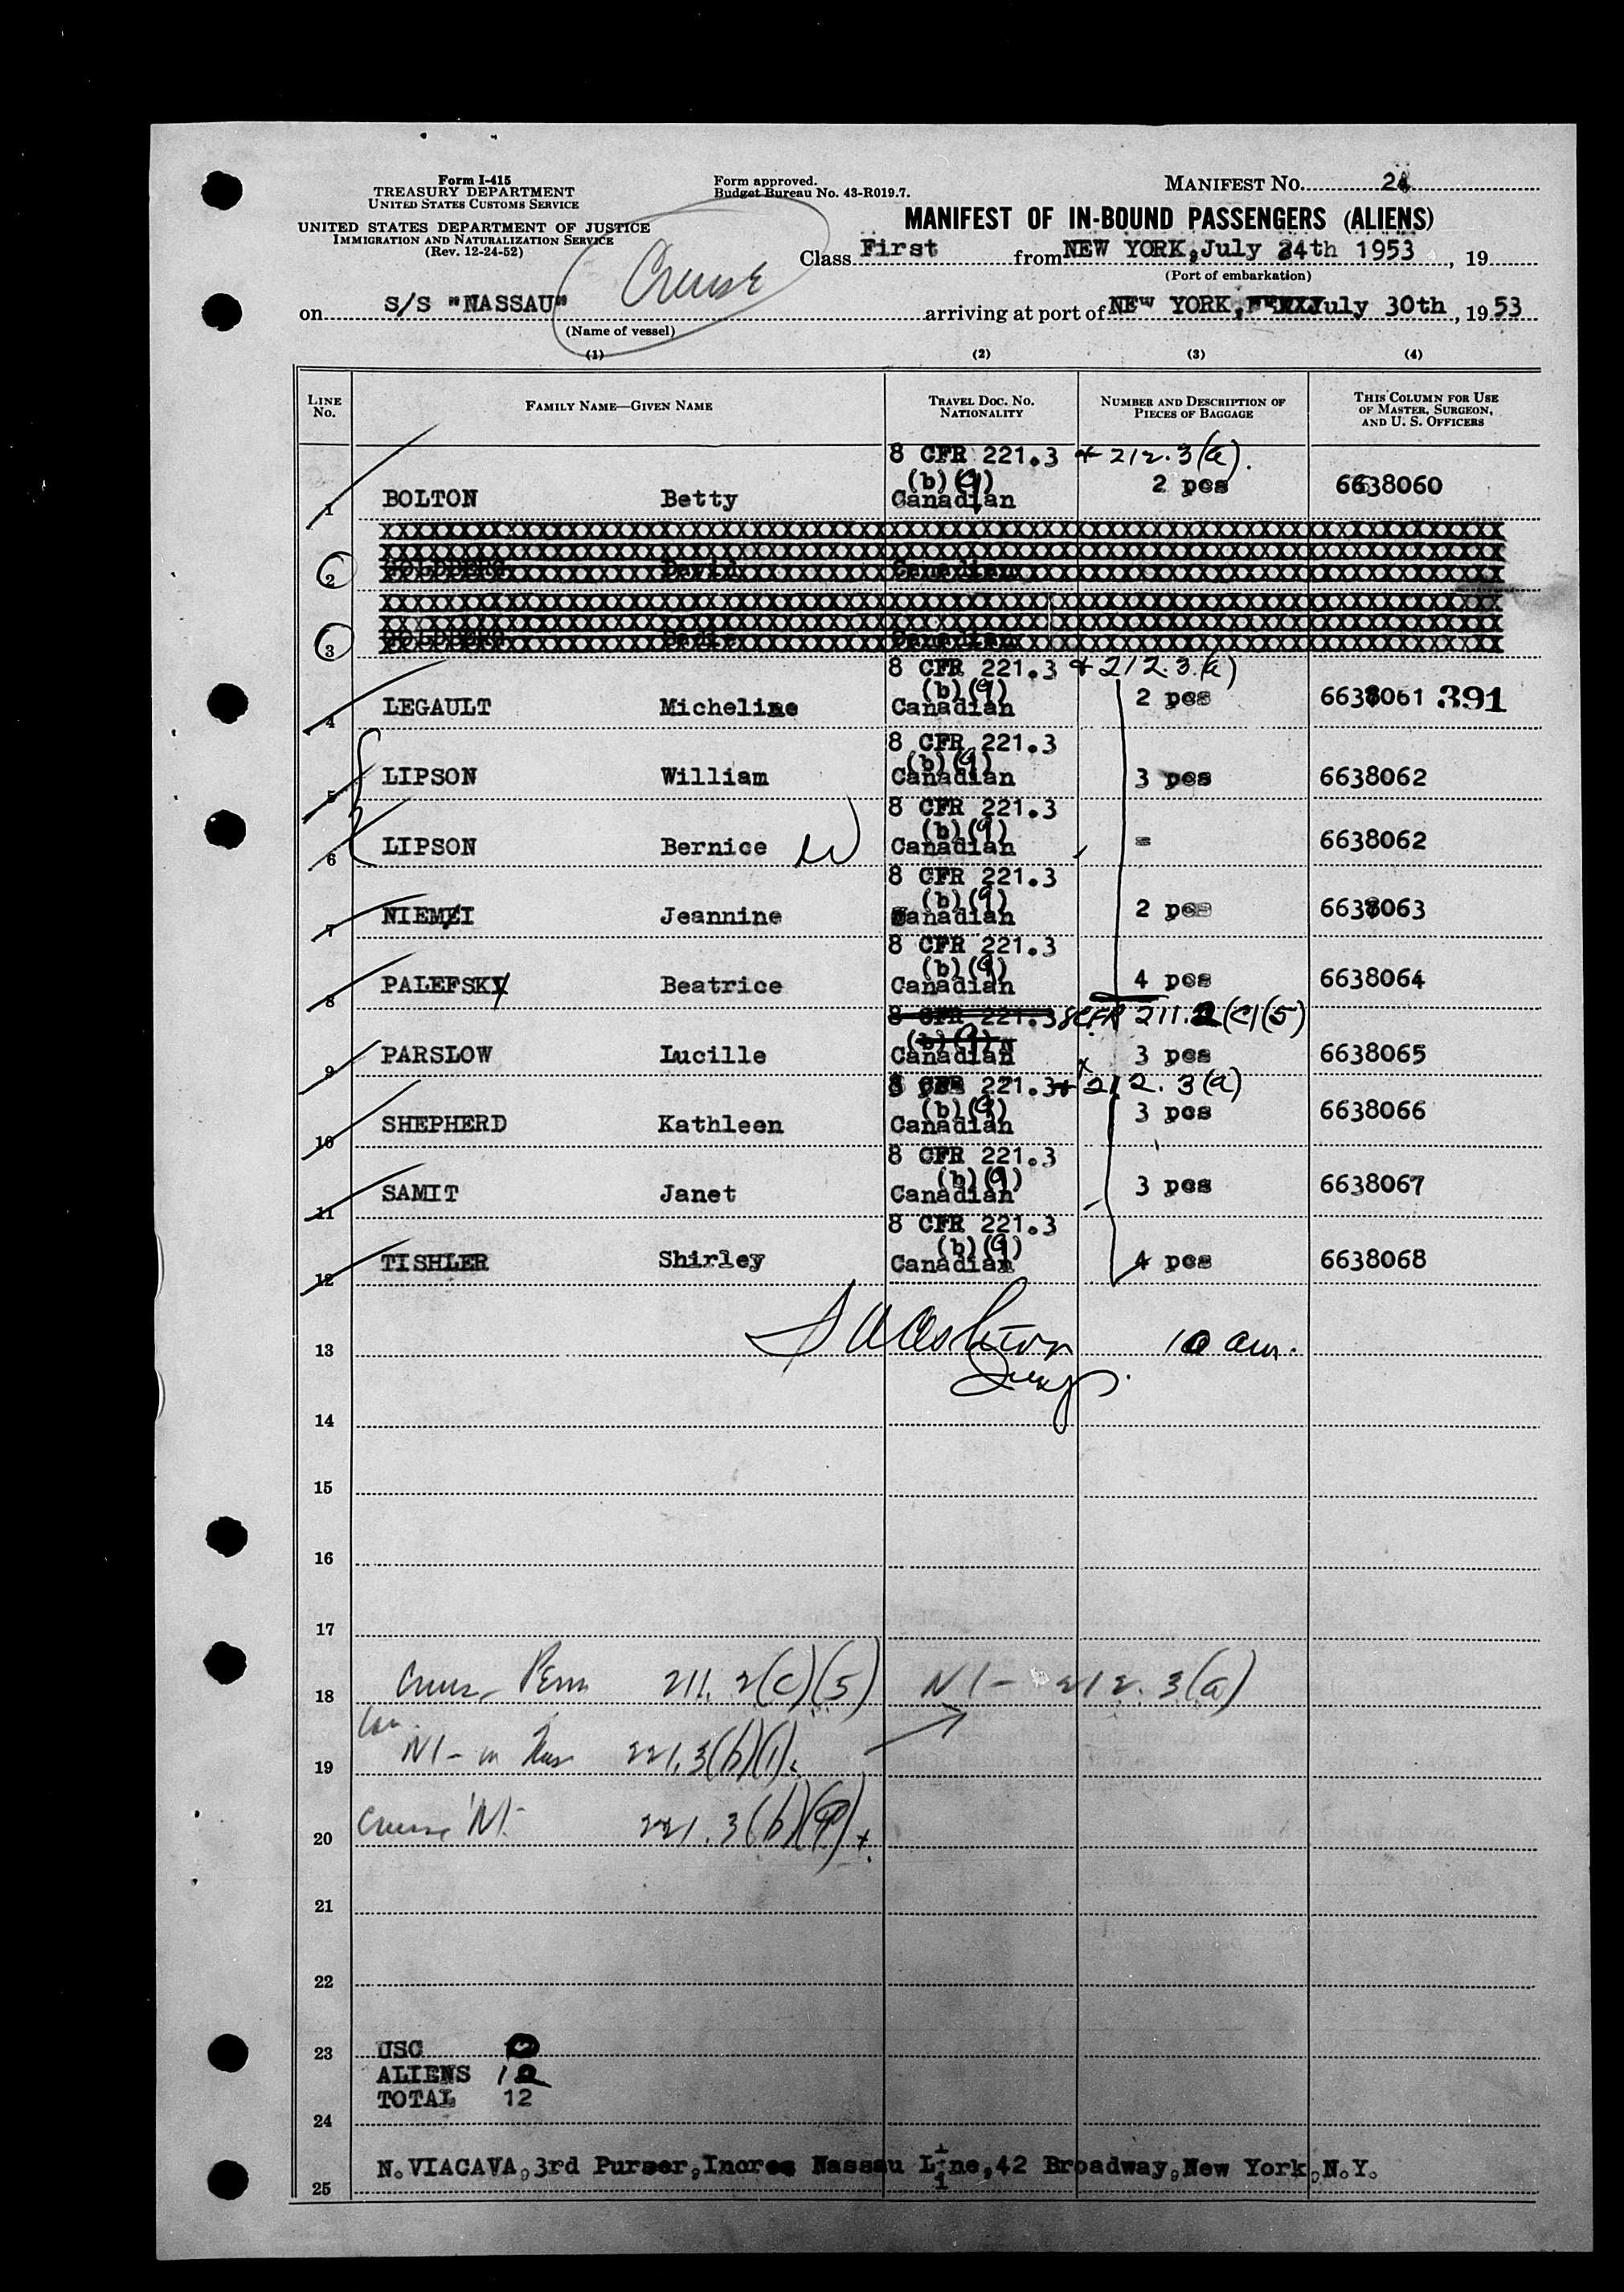 Form I-415
TREASURY DEPARTMENT
UNITED STATES CUSTOMS SERVICE
UNITED STATES DEPARTMENT OF JUSTICE
IMMIGRATION AND NATURALIZATION SERVICE
(Rev. 12-24-52)
Form approved.
Budget Bureau No. 43-R019.7.
MANIFEST NO. 24
MANIFEST OF IN-BOUND PASSENGERS (ALIENS)
Class First from NEW YORK, July 24th 1953, 19
(Port of embarkation)
Cruise
on S/S "NASSAU" arriving at port of NEW YORK, July 30th, 1953
(Name of vessel)
(1) (2) (3) (4)
LINE NO. FAMILY NAME—GIVEN NAME TRAVEL DOC. NO. NATIONALITY NUMBER AND DESCRIPTION OF PIECES OF BAGGAGE THIS COLUMN FOR USE OF MASTER, SURGEON, AND U. S. OFFICERS
8 CFR 221.3 + 212.3(a).
(b)(9)
1 BOLTON Betty Canadian 2 pcs 6638060
2 David Canadian
3 Canadian
8 CFR 221.3 + 212.3(a)
(b)(9)
4 LEGAULT Micheline Canadian 2 pcs 6638061 391
8 CFR 221.3
(b)(9)
5 LIPSON William Canadian 3 pcs 6638062
8 CFR 221.3
(b)(9)
6 LIPSON Bernice W Canadian = 6638062
8 CFR 221.3
(b)(9)
7 NIEMI Jeannine Canadian 2 pcs 6638063
8 CFR 221.3
(b)(9)
8 PALEFSKY Beatrice Canadian 4 pcs 6638064
8 CFR 221.3 8CFR 211.2(c)(5)
(b)(9)
9 PARSLOW Lucille Canadian 3 pcs 6638065
8 CFR 221.3 + 212.3(a)
(b)(9)
10 SHEPHERD Kathleen Canadian 3 pcs 6638066
8 CFR 221.3
(b)(9)
11 SAMIT Janet Canadian 3 pcs 6638067
8 CFR 221.3
(b)(9)
12 TISHLER Shirley Canadian 4 pcs 6638068
13 10 am.
14
15
16
17
18 Cruise Perm 211.2(c)(5) NI - 212.3(a)
19 NI - in 221.3(b)(1)
20 Cruise NI 221.3(b)(9) +
21
22
23 USC 0
ALIENS 12
TOTAL 12
24
25 N. VIACAVA, 3rd Purser, Incres Nassau Line, 42 Broadway, New York, N.Y.